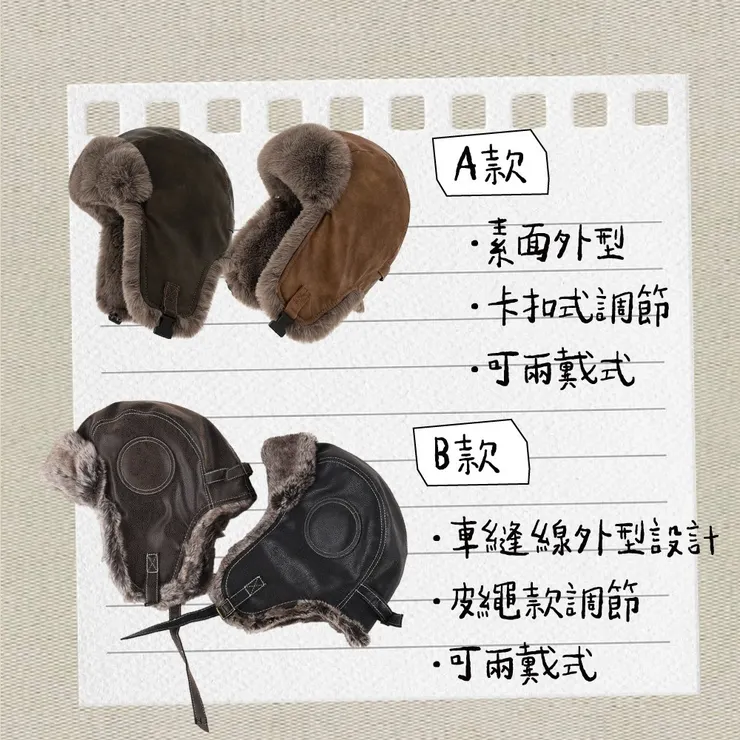 A款
·素面外型
·卡扣式調節
·可兩戴式
B款
·車縫線外型設計
·皮繩款調節
·可兩戴式